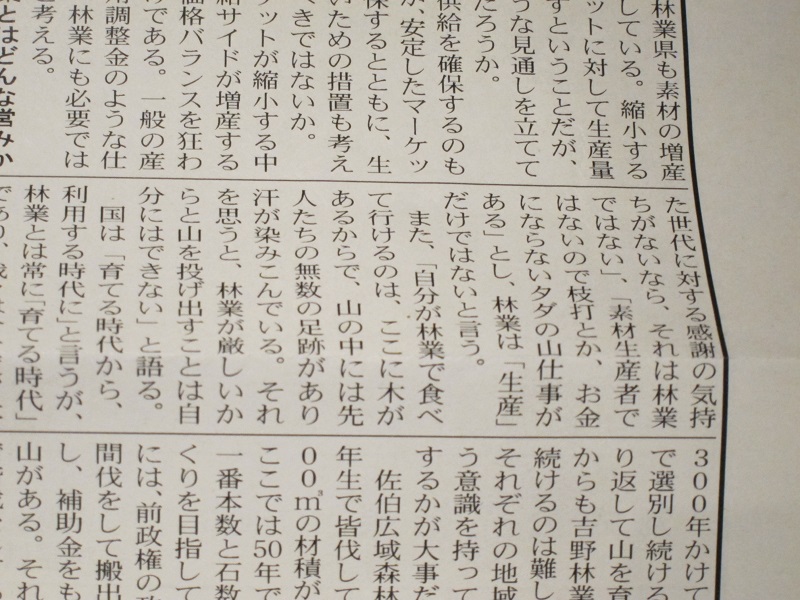 林業県も素材の増産
している。縮小する
ットに対して生産量
すということだが、
うな見通しを立てて
だろうか。
供給を確保するのも
が、安定したマーケッ
保するとともに、生
いための措置も考え
べきではないか。
ケットが縮小する中
給サイドが増産する
価格バランスを狂わ
けである。一般の産
用調整金のような仕
林業にも必要では
と考える。
業とはどんな営みか
た世代に対する感謝の気持
ちがないなら、それは林業
ではない」、「素材生産者で
はないので枝打とか、お金
にならないタダの山仕事が
ある」とし、林業は「生産」
だけではないと言う。
また、「自分が林業で食べ
て行けるのは、ここに木が
あるからで、山の中には先
人たちの無数の足跡があり
汗が染みこんでいる。それ
を思うと、林業が厳しいか
らと山を投げ出すことは自
分にはできない」と語る。
国は「育てる時代から、
利用する時代に」と言うが、
林業とは常に「育てる時代」
であり、
300年かけて
で選別し続ける
り返して山を育
からも吉野林業
続けるのは難し
それぞれの地域
う意識を持って
するかが大事だ
佐伯広域森林
年生で皆伐して
00㎥の材積が
ここでは50年で
一番本数と石数
くりを目指して
には、前政権の
間伐をして搬出
し、補助金をも
山がある。それ